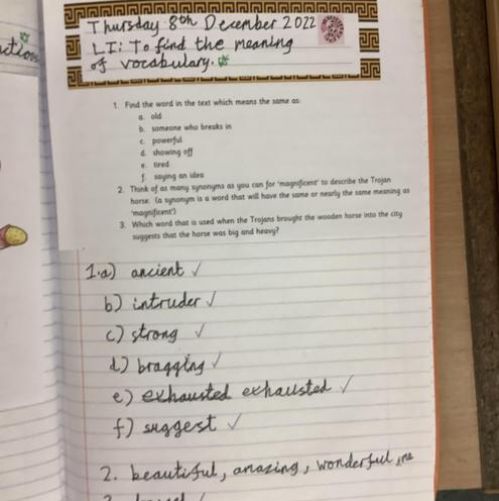 Thursday 8th December 2022
LI: To find the meaning
of vocabulary.
1. Find the word in the text which means the same as:
a. old
b. someone who breaks in
c. powerful
d. showing off
e. tired
f. saying an idea
2. Think of as many synonyms as you can for 'magnificent' to describe the Trojan
horse. (a synonym is a word that will have the same or nearly the same meaning as
'magnificent')
3. Which word that is used when the Trojans brought the wooden horse into the city
suggests that the horse was big and heavy?
1.a) ancient ✓
b) intruder ✓
c) strong ✓
d) bragging ✓
e) exhausted exhausted ✓
f) suggest ✓
2. beautiful, amazing, wonderful,